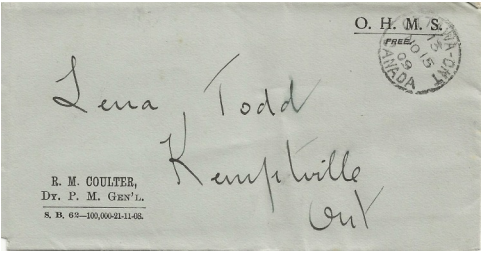 O. H. M. S.
FREE.
OTTAWA-ONT
15
NO 15
09
CANADA
Lena Todd
Kemptville
Ont
R. M. COULTER,
DY. P. M. GEN'L.
S. B. 62—100,000-21-11-08.